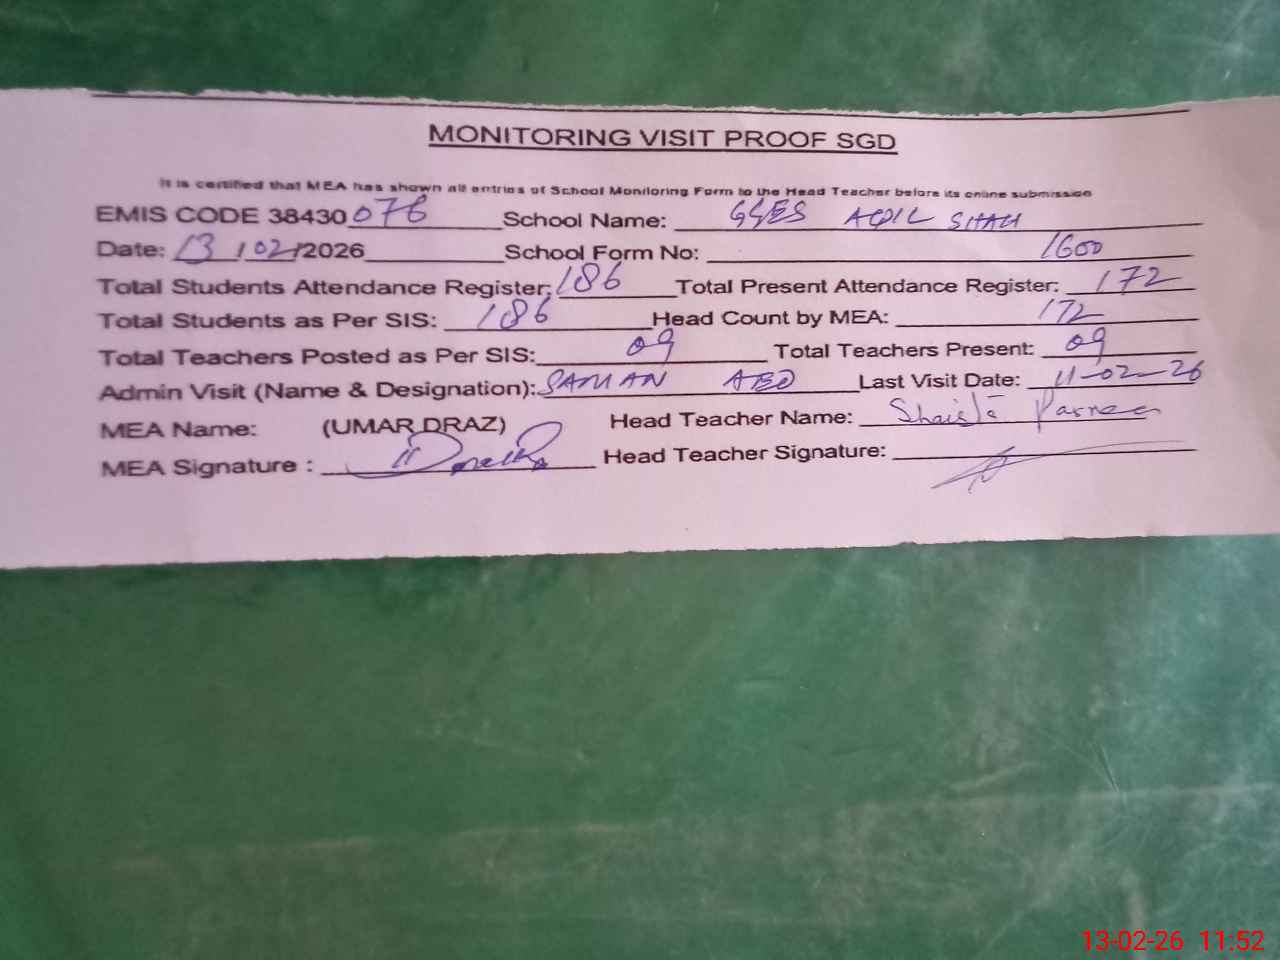 MONITORING VISIT PROOF SGD
It is certified that MEA has shown all entries of School Monitoring Form to the Head Teacher before its online submission
EMIS CODE 38430076 School Name: GGES AQIL SHAH
Date: 13/02/2026 School Form No: 1600
Total Students Attendance Register: 186 Total Present Attendance Register: 172
Total Students as Per SIS: 186 Head Count by MEA: 172
Total Teachers Posted as Per SIS: 09 Total Teachers Present: 09
Admin Visit (Name & Designation): SAMAN AEO Last Visit Date: 11-02-26
MEA Name: (UMAR DRAZ) Head Teacher Name: Shaista Parveen
MEA Signature : Head Teacher Signature:
13-02-26 11:52